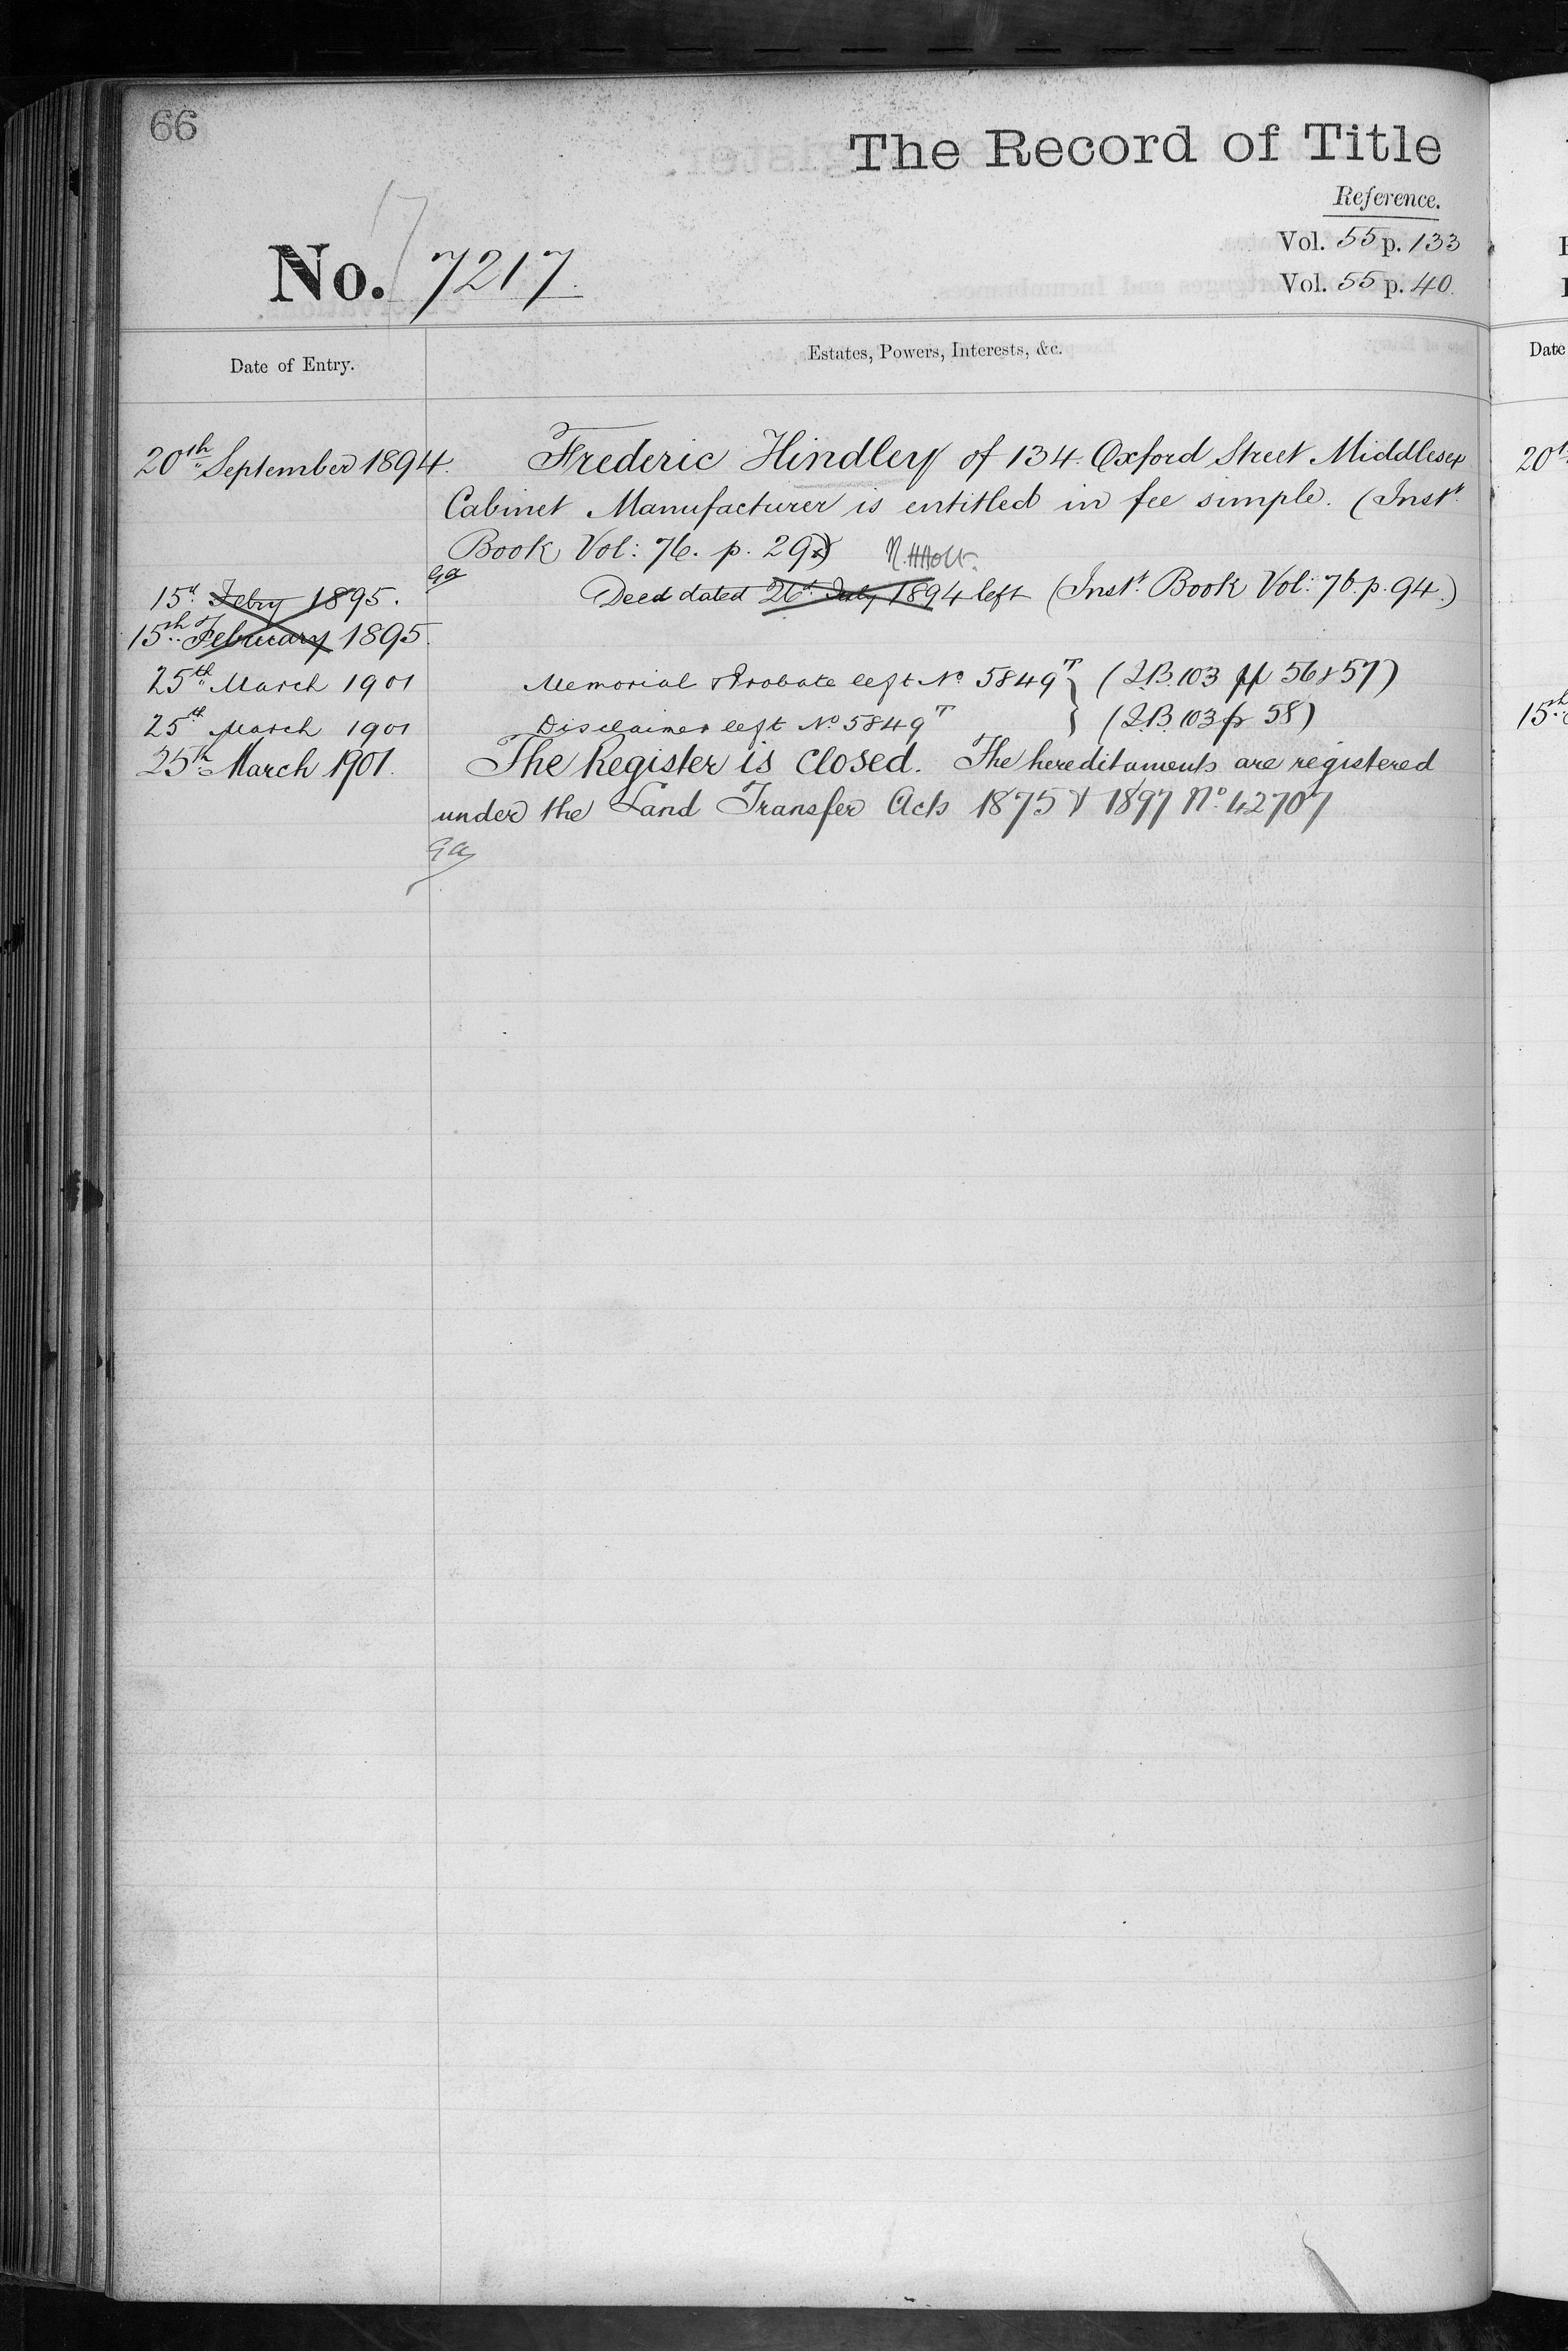 66
The Record of Title
Reference.
17
No. 7217.
Vol. 55 p. 133
Vol. 55 p. 40.
Date of Entry.
Estates, Powers, Interests, &c.
20th September 1894.
Frederic Hindley of 134. Oxford Street Middlesex
Cabinet Manufacturer is entitled in fee simple. (Inst.
Book Vol: 76. p. 29)
Ga
15th Febry 1895.
Deed dated 26th July 1894 left (Inst. Book Vol: 76. p. 94.)
15th February 1895.
25th March 1901
Memorial & Probate left No 5849T (I.B. 103 pp 56 & 57)
25th March 1901
Disclaimer left No 5849T (I.B. 103 p 58)
25th March 1901.
The Register is Closed. The hereditaments are registered
under the Land Transfer Acts 1875 & 1897 No. 42707
Ga
Date
20th
15th